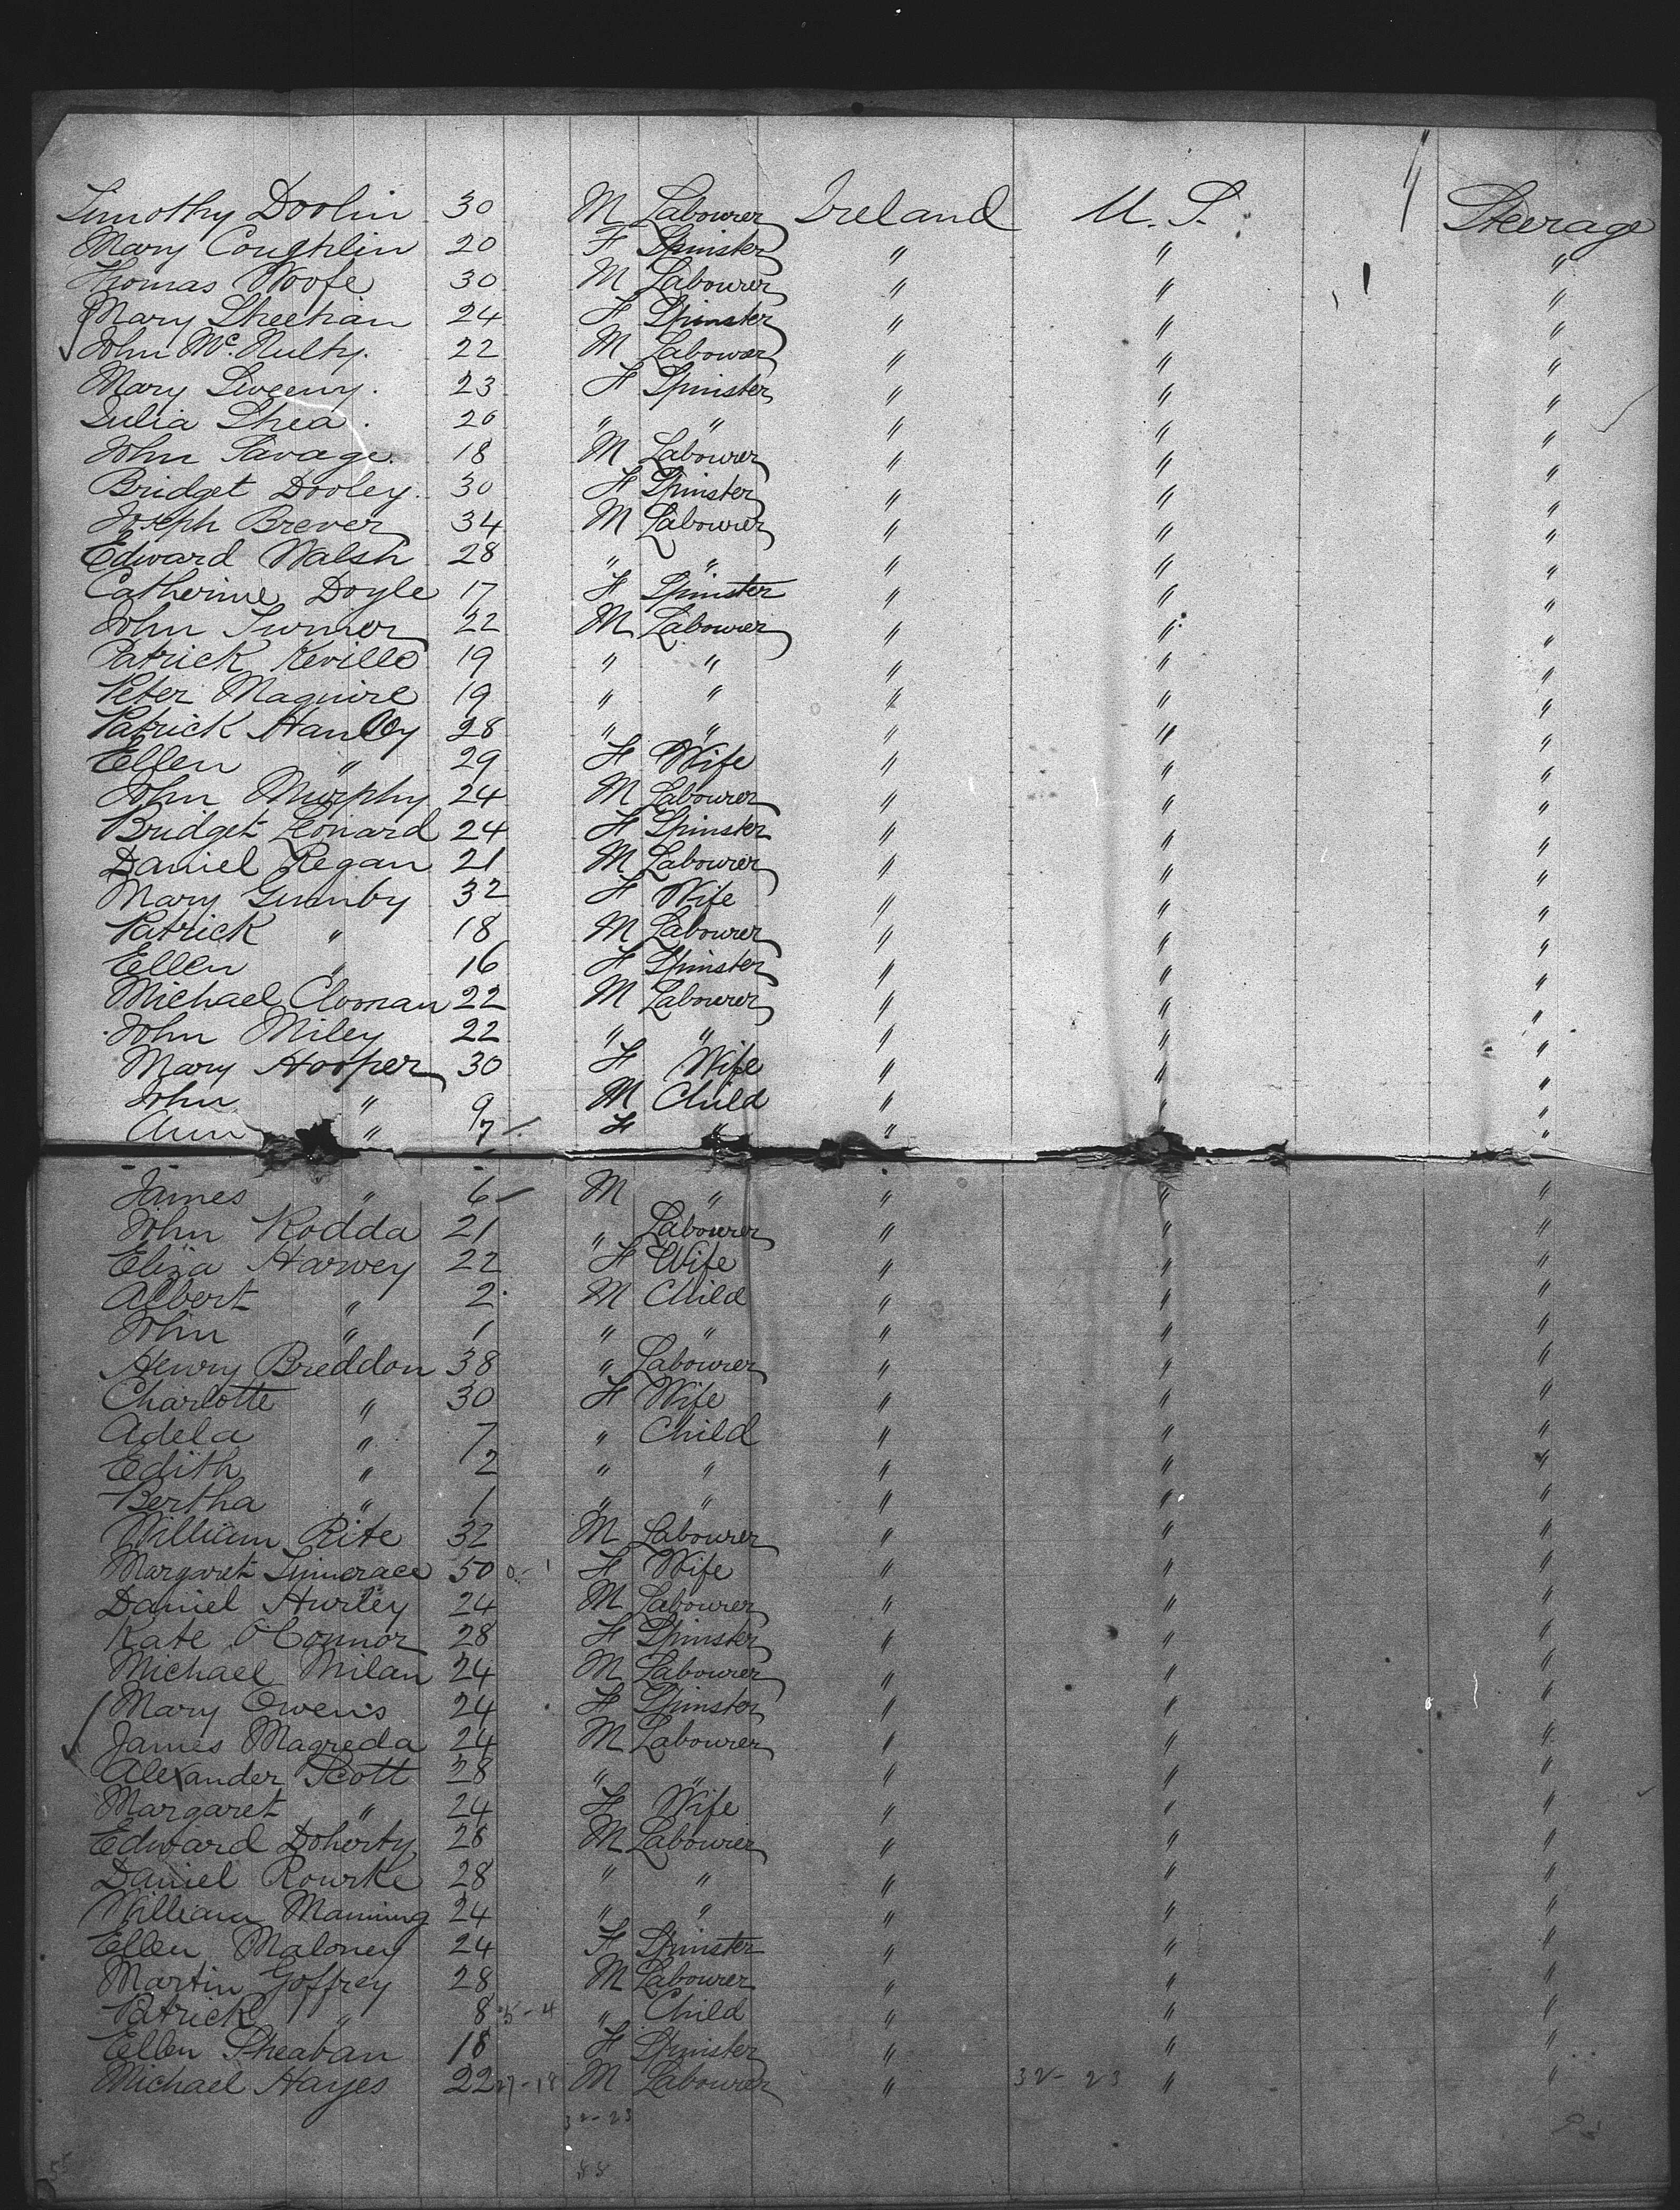 Timothy Doolin 30 M Labourer Ireland U. S. Steerage
Mary Coughlin 20 F Spinster " " "
Thomas Woofe 30 M Labourer " " "
Mary Sheehan 24 F Spinster " " "
John Mc. Nulty. 22 M Labourer " " "
Mary Sweeny. 23 F Spinster " " "
Julia Shea. 20 " " " " "
John Savage. 18 M Labourer " " "
Bridget Dooley. 30 F Spinster " " "
Joseph Brever 34 M Labourer " " "
Edward Walsh 28 " " " " "
Catherine Doyle 17 F Spinster " " "
John Turner 22 M Labourer " " "
Patrick Keville 19 " " " " "
Peter Maguire 19 " " " " "
Patrick Hanley 28 " " " " "
Ellen " 29 F Wife " " "
John Murphy 24 M Labourer " " "
Bridget Leonard 24 F Spinster " " "
Daniel Regan 21 M Labourer " " "
Mary Gumby 32 F Wife " " "
Patrick " 18 M Labourer " " "
Ellen " 16 F Spinster " " "
Michael Cloonan 22 M Labourer " " "
John Miley 22 " " " " "
Mary Hooper 30 F Wife " " "
John " 9 M Child " " "
Ann " 7 F " " " "
James " 6 M " " " "
John Rodda 21 " Labourer " " "
Eliza Harvey 22 F Wife " " "
Albert " 2 M Child " " "
John " 1 " " " " "
Henry Breddon 38 " Labourer " " "
Charlotte " 30 F Wife " " "
Adela " 7 " Child " " "
Edith " 2 " " " " "
Bertha " 1 " " " " "
William Rite 32 M Labourer " " "
Margaret 50 F Wife " " "
Daniel Hurley 24 M Labourer " " "
Kate O'Connor 28 F Spinster " " "
Michael Milan 24 M Labourer " " "
Mary Owens 24 F Spinster " " "
James Magreda 24 M Labourer " " "
Alexander Scott 28 " " " " "
Margaret " 24 F Wife " " "
Edward Doherty 28 M Labourer " " "
Daniel Rourke 28 " " " " "
William Manning 24 " " " " "
Ellen Maloney 24 F Spinster " " "
Martin Goffrey 28 M Labourer " " "
Patrick " 8 " Child " " "
Ellen Sheaban 18 F Spinster " " "
Michael Hayes 22 M Labourer " 32-23 " "
32-23